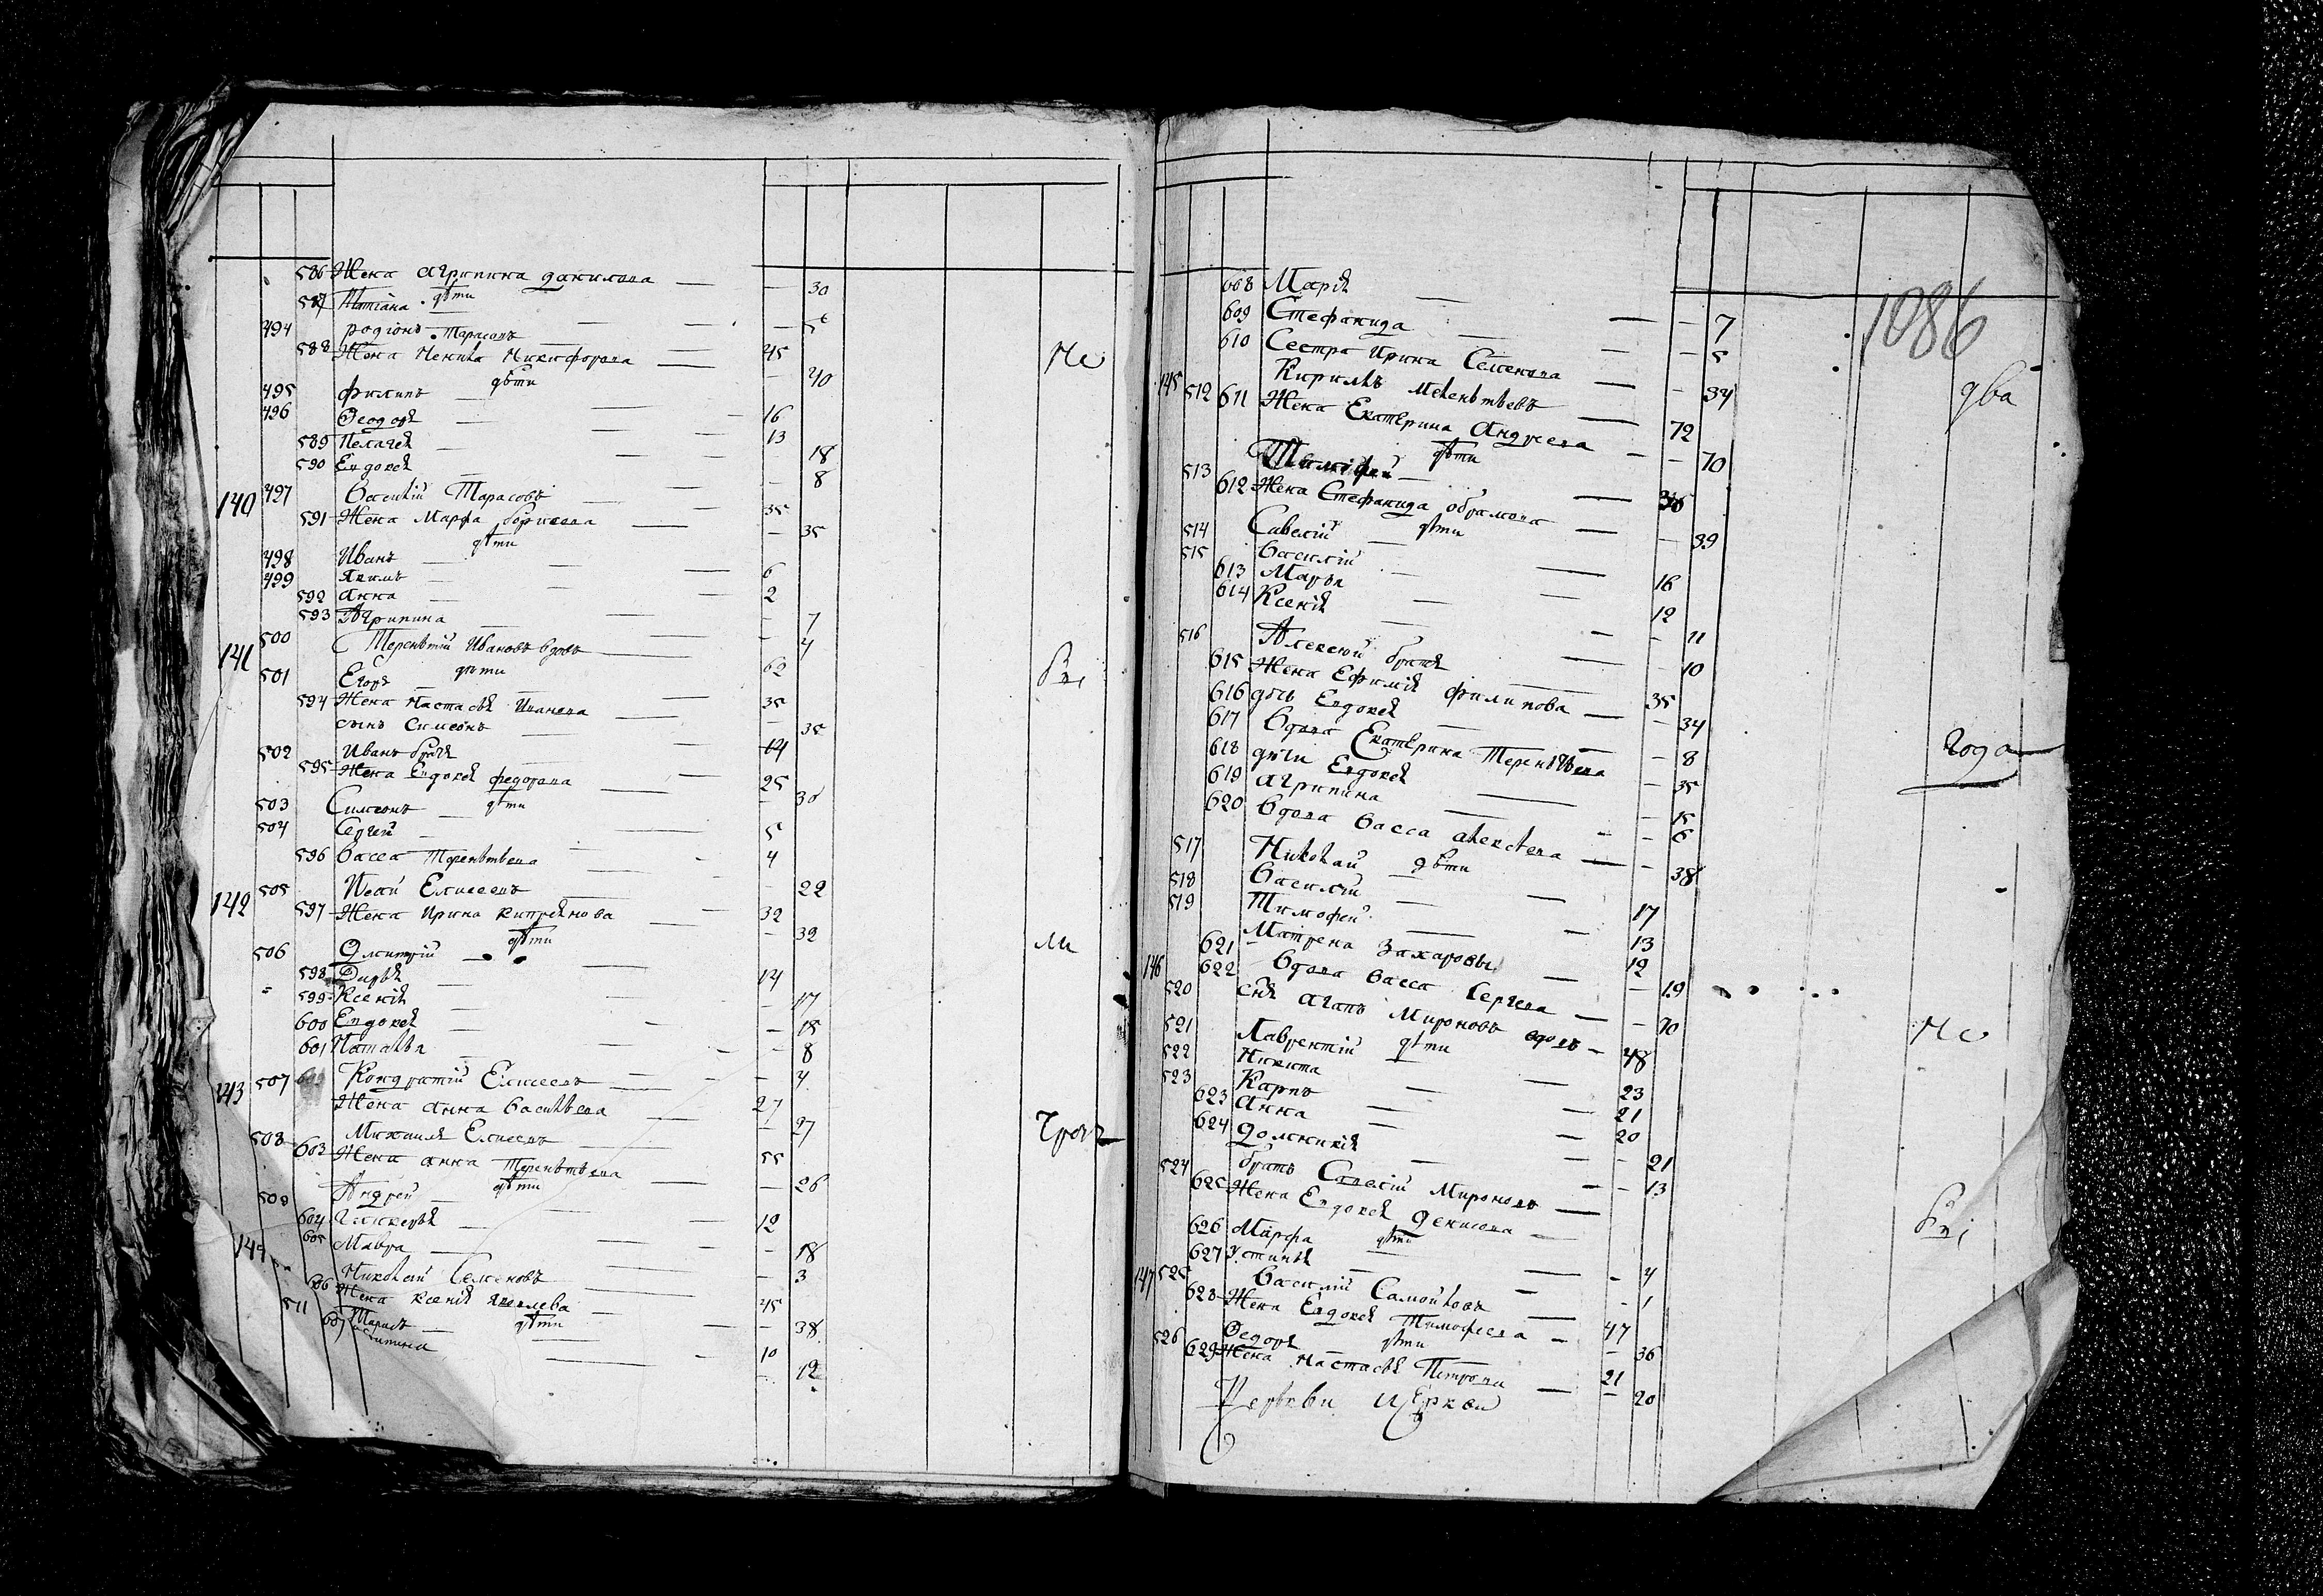 586 Жена Агрипина Данилова — — 30
дѣти
587 Татіана — — 5
494 родіонъ Тарасовъ — 45
588 Жена Ненила Никифорова — — 40
Не
дѣти
495 Филипъ — 16
496 Ѳеодоръ — 13
589 Пелагея — 18
590 Евдокея — — 8
140 497 Василій Тарасовъ — 35
591 Жена Марфа борисова — — 35
дѣти
498 Иванъ — 6
499 Якимъ — 2
592 Анна — 7
593 Агрипина — — 4
141 500 Терентій Ивановъ вдовъ — 62
дѣти
501 Егоръ — 35
594 Жена Настасья Иванова — — 35
сынъ Симеонъ — 14
502 Иванъ братъ — 25
595 Жена Евдокея федорова — — 30
дѣти
503 Симеонъ — 5
504 Сергей — 4
596 Васса Терентьева — — 22
142 505 Исай Елисеевъ — 32
597 Жена Ирина Кипреянова — — 32
дѣти
506 Дмитрій — 14
598 Дарья — — 17
599 Ксенія — — 15
600 Евдокея — — 8
601 Наталья — — 4
143 507 Кондратій Елисеевъ — 27
Жена Анна Васильева — — 27
508 Михаилъ Елисеевъ — 55
603 Жена Анна Терентьева — — 26
дѣти
509 Андрей — 12
604 Гликерья — — 18
605 Мавра — — 3
144 Николай Семеновъ — 45
606 Жена Ксенія Яковлева — — 38
дѣти
511 Тарасъ — 10
607 — 12
1086
608 Марія — — 7
609 Стефанида — — 5
610 Сестра Ирина Семенова — — 34
два
145 512 Кирилъ Мелентьевъ — 72
611 Жена Екатерина Андреева — — 70
дѣти
513 Тимофей — 36
612 Жена Стефанида Абрамова — — 39
дѣти
514 Савелій — 16
515 Василій — 12
613 Марья — — 11
614 Ксенія — — 10
516 Алексей братъ — 35
615 Жена Ефимія Филипова — — 34
616 дочь Евдокея — — 8
617 Вдова Екатерина Терентьева — — 35
года
618 дочи Евдокея — — 15
619 Агрипина — — 6
620 Вдова Васса Алексеева — — 38
дѣти
517 Николай — 17
518 Василій — 13
519 Тимофей — 12
621 Матрена Захаровы — — 19
146 622 Вдова Васса Сергеева — — 70
520 Агапъ Мироновъ вдовъ — 48
Не
дѣти
521 Лаврентій — 23
522 Никита — 21
523 Карпъ — 20
623 Анна — — 21
624 Домникія — — 13
524 братъ Савелій Мироновъ —
625 Жена Евдокея Денисова —
дѣти
626 Марфа — — 4
627 Устинья — — 1
147 525 Василій Самойловъ — 47
628 Жена Евдокея Тимофеева — — 36
дѣти
526 Ѳедоръ — 21
629 Жена Настасья Петрова — — 20
Церкви Церкви